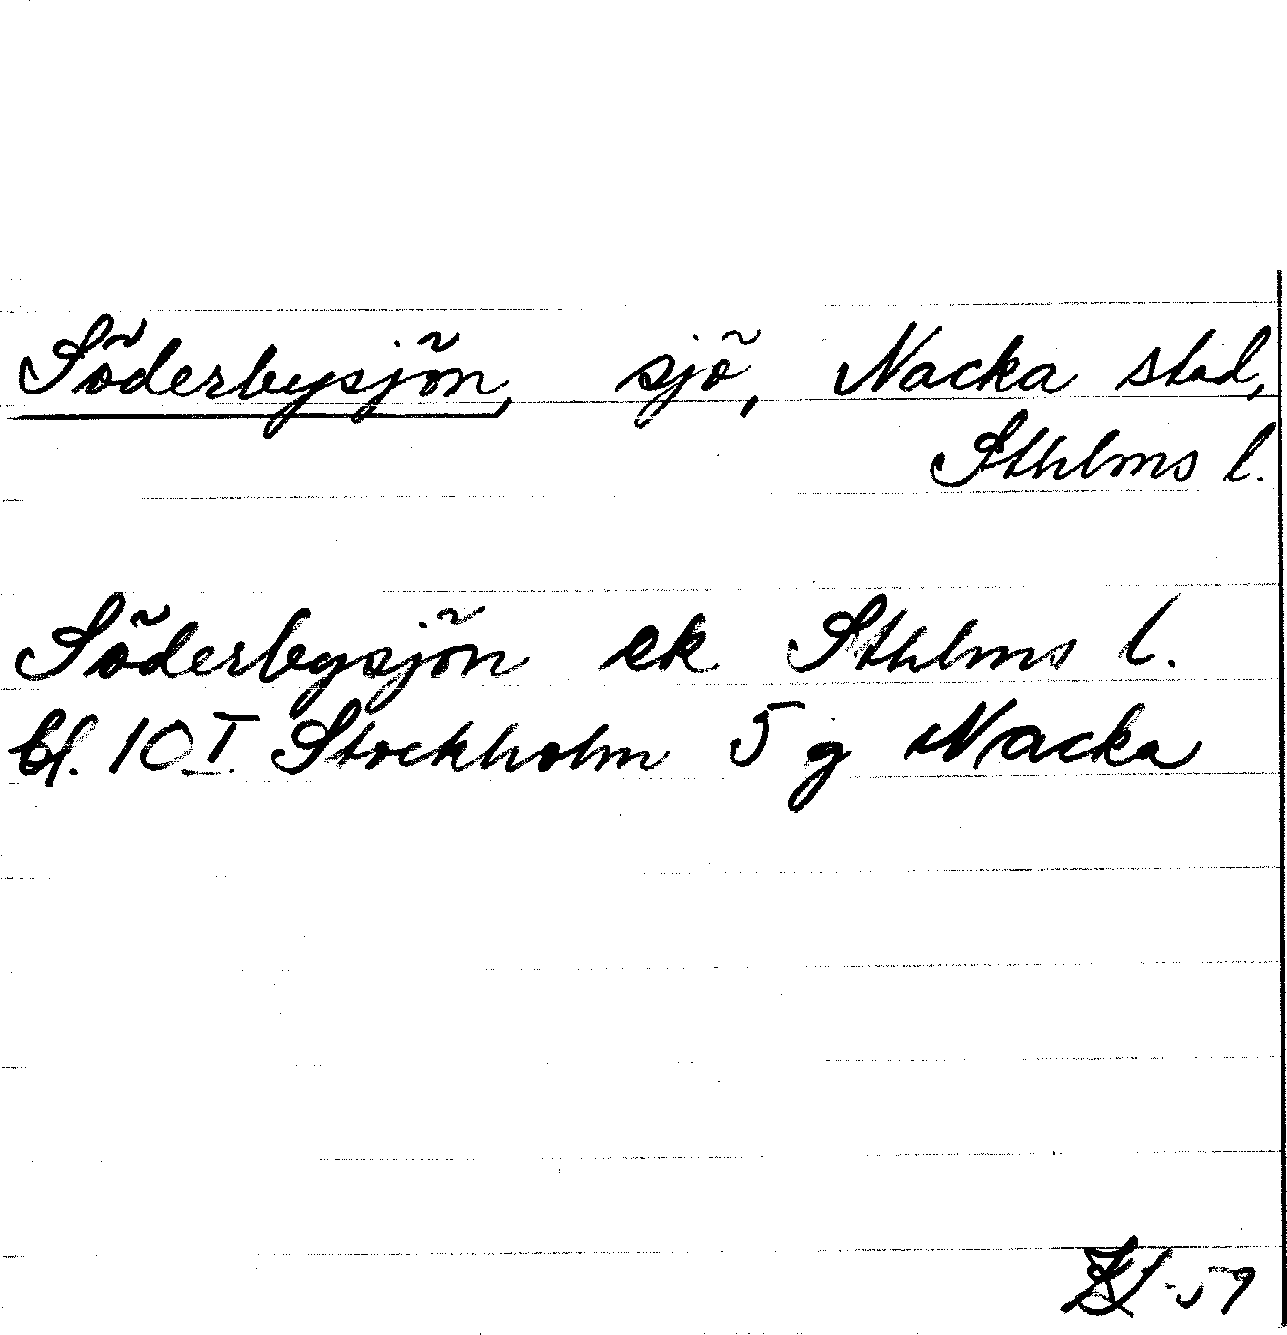 Söderbysjön, sjö, Nacka stad,
Sthlms l.
Söderbysjön ek Sthlms l.
bl. 10 I Stockholm 5 g Nacka
-59